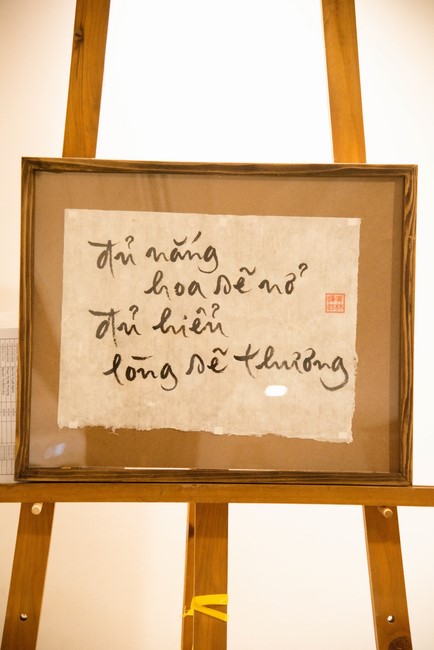 đủ nắng
hoa sẽ nở
đủ hiểu
lòng sẽ thương